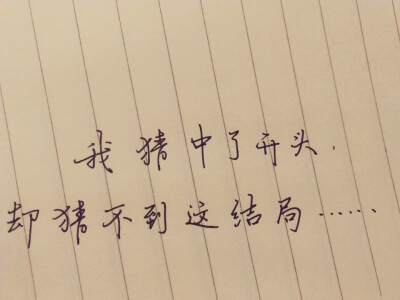 我猜中了开头.
却猜不到这结局……